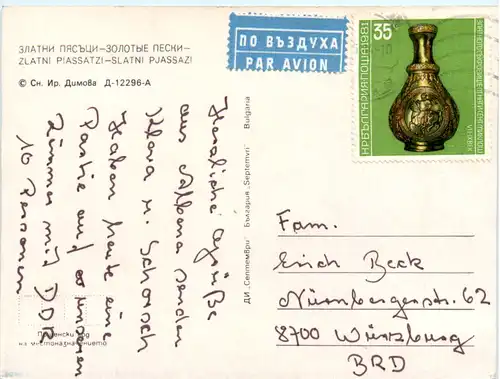 ЗЛАТНИ ПЯСЪЦИ–ЗОЛОТЫЕ ПЕСКИ–
ZLATNI PIASSATZI–SLATNI PJASSAZI
© Сн. Ир. Димова Д-12296-А
ПО ВЪЗДУХА
PAR AVION
35
НР БЪЛГАРИЯ·ПОЩА·1981
Herzliche Grüße
aus Albena senden
Klara u. Schorsch
Haben heute eine
Partie auf unseren
Zimmer mit DDR
10 Personen
ДИ „Септември" България „Septemvri" Bulgaria
Fam.
Erich Beck
Nürnbergerstr. 62
8700 Würzburg
BRD
Пощенски код
на местоназначението